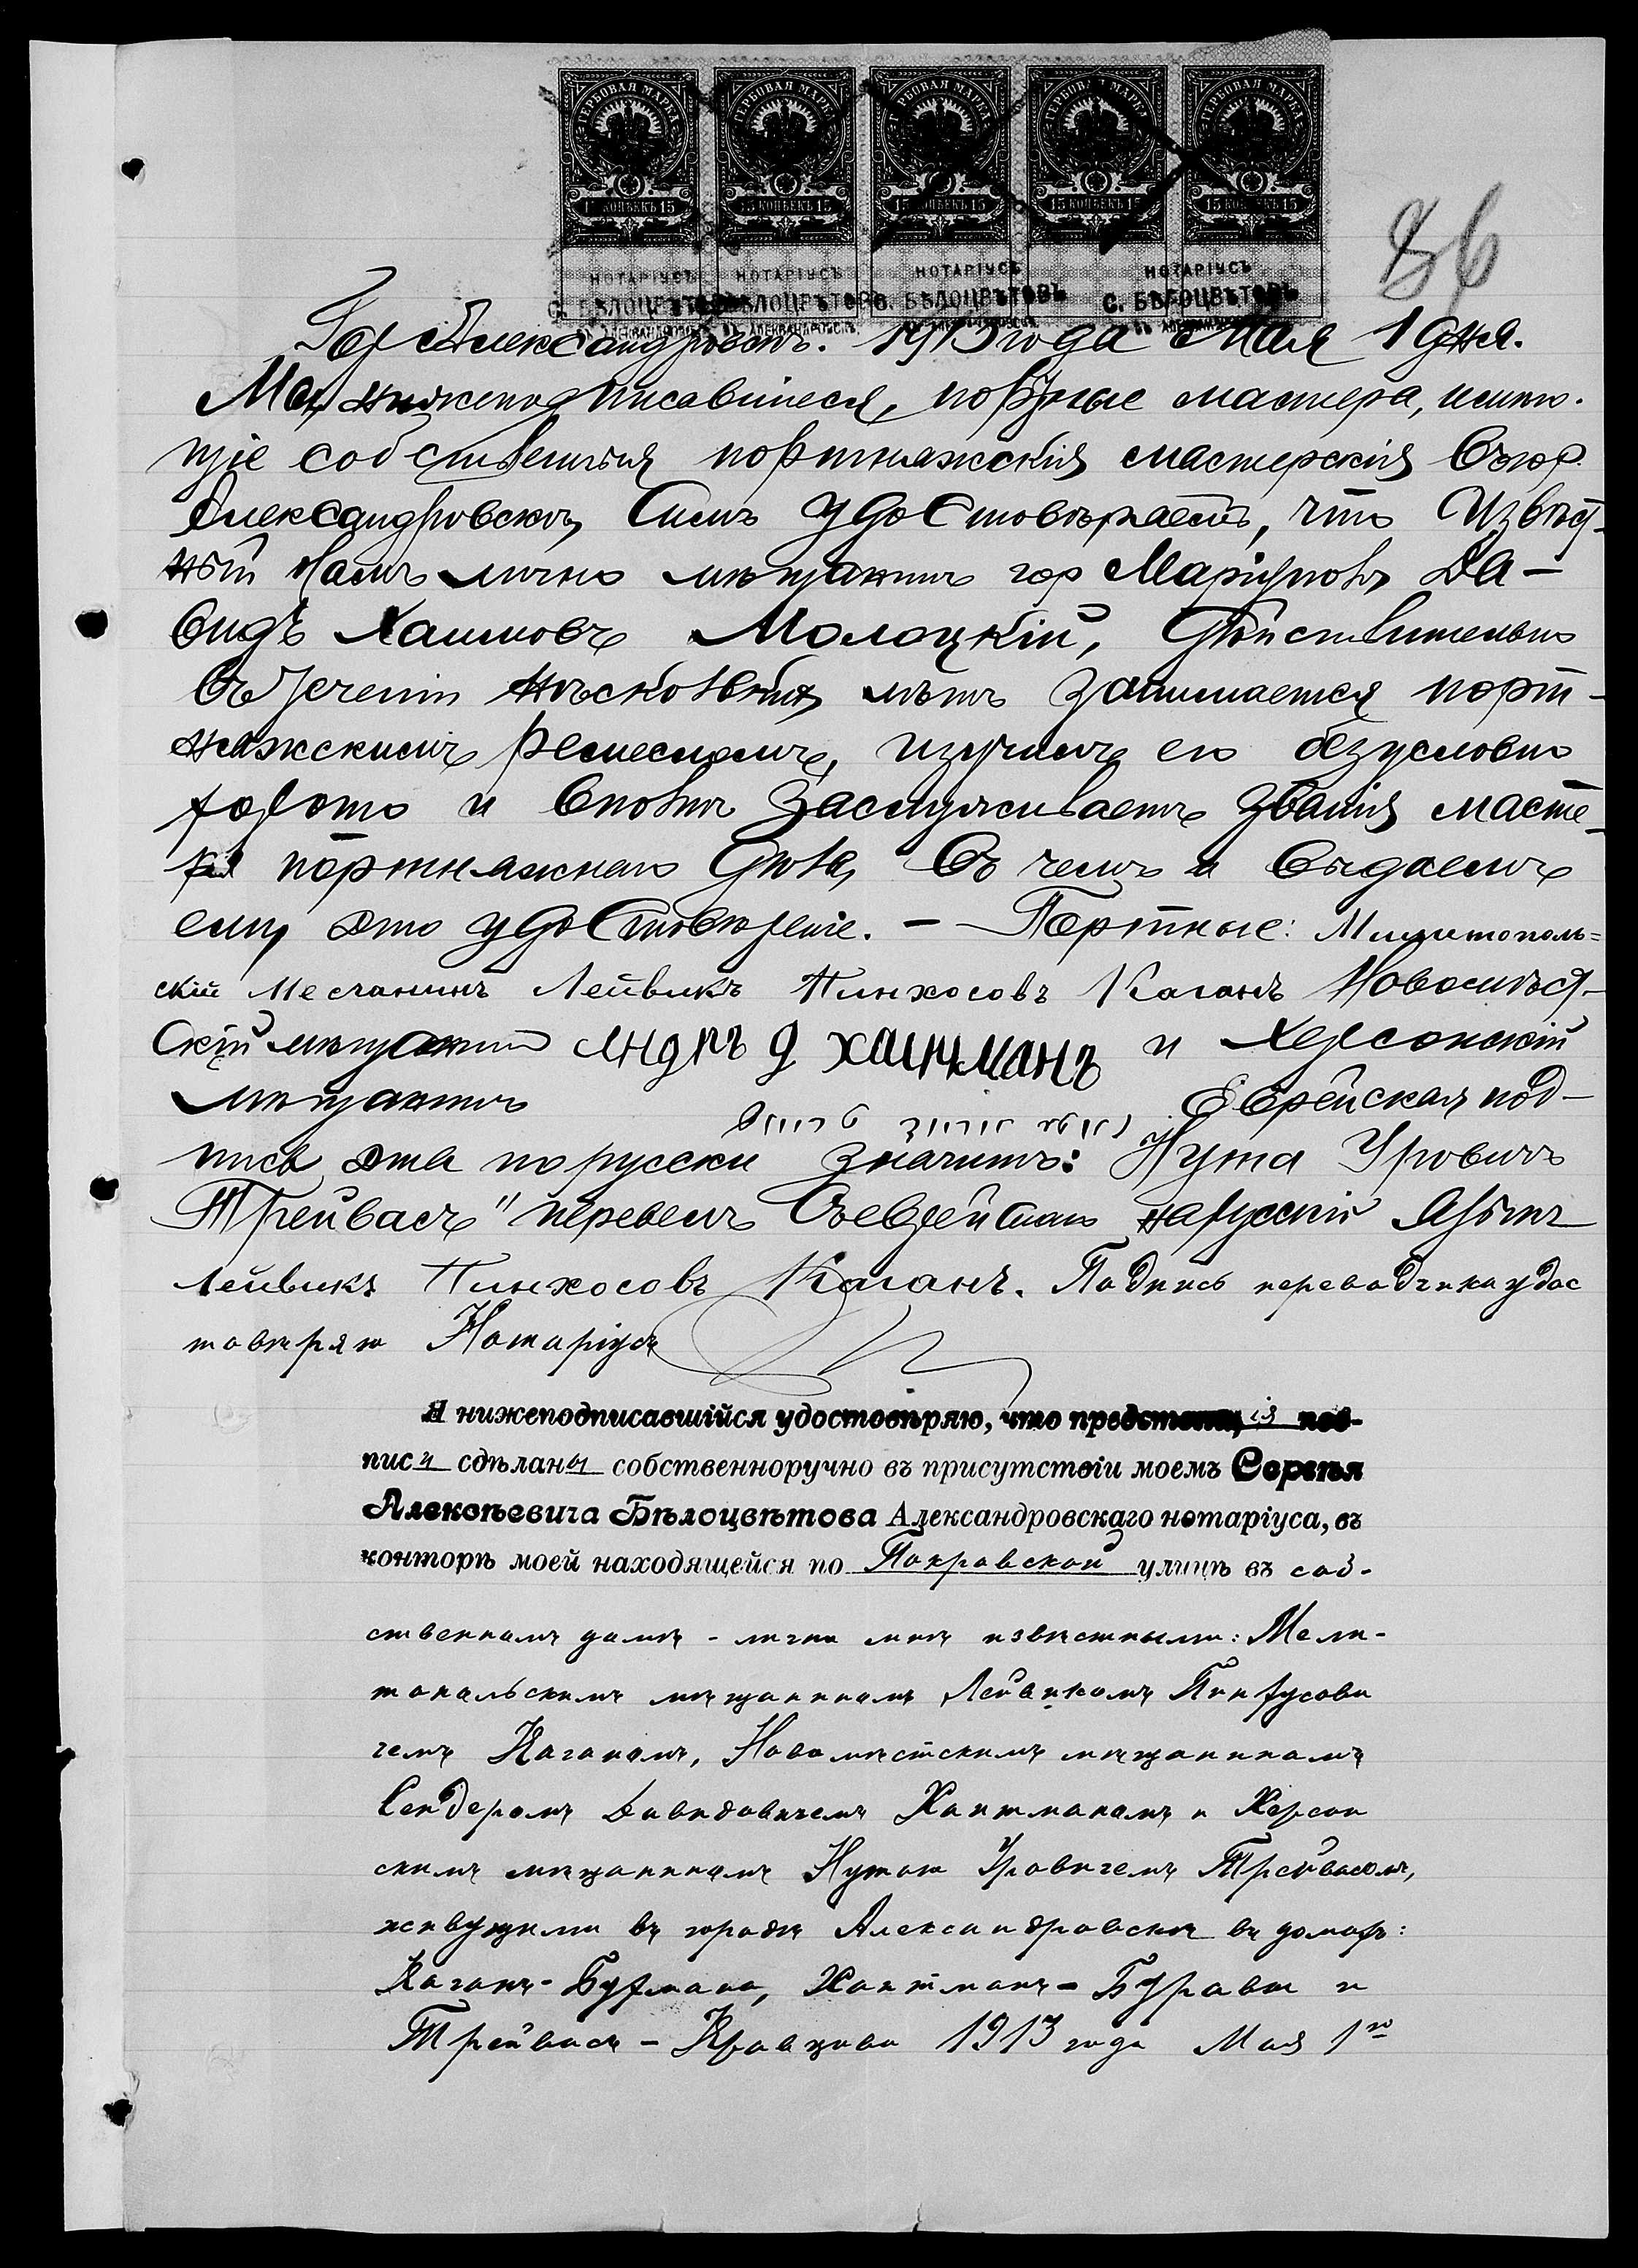 ГЕРБОВАЯ МАРКА ГЕРБОВАЯ МАРКА ГЕРБОВАЯ МАРКА ГЕРБОВАЯ МАРКА ГЕРБОВАЯ МАРКА
15 КОПѢЕКЪ 15 15 КОПѢЕКЪ 15 15 КОПѢЕКЪ 15 15 КОПѢЕКЪ 15 15 КОПѢЕКЪ 15
86
НОТАРІУСЪ НОТАРІУСЪ НОТАРІУСЪ НОТАРІУСЪ
С. БѢЛОЦВѢТОВЪ С. БѢЛОЦВѢТОВЪ С. БѢЛОЦВѢТОВЪ С. БѢЛОЦВѢТОВЪ
въ АЛЕКСАНДРОВСКѢ въ АЛЕКСАНДРОВСКѢ въ АЛЕКСАНДРОВСКѢ въ АЛЕКСАНДРОВСКѢ
Гор Александровскъ. 1913 года Мая 1 дня.
Мы, нижеподписавшіеся, портные мастера, имѣю-
щіе собственныя портняжскія мастерскія въ гор.
Александровскѣ, симъ удостовѣряемъ, что извѣст-
ный намъ лично мѣщанинъ гор Маріуполя Да-
видъ Хаимовъ Молоцкій, дѣйствительно
въ теченіи нѣсколькихъ лѣтъ занимается порт-
няжскимъ ремесломъ, изучилъ его безусловно
хорошо и вполнѣ заслуживаетъ званія масте-
ра портняжнаго дѣла, въ чемъ и выдаемъ
ему это удостовѣреніе. — Портные: Мелитополь=
скій Месчанинъ Лейвикъ Пинхосовъ Каганъ Новомѣст-
скій мѣщанинъ Д ХАНТМАНЪ и Херсонскій
мѣщанинъ Еврейская под-
пись эта по русски значитъ: Нута Уровичъ
Трейвасъ" перевелъ съ еврейскаго на русскій языкъ
Лейвикъ Пинхосовъ Каганъ. Подпись переводчика удос
товѣряю Нотаріусъ
Я нижеподписавшійся удостовѣряю, что предстоящія под-
писи сдѣланы собственноручно въ присутствіи моемъ Сергѣя
Алексѣевича Бѣлоцвѣтова Александровскаго нотаріуса, въ
конторѣ моей находящейся по Покровской улицѣ въ соб-
ственномъ домѣ - лично мнѣ извѣстными: Мели-
топольскимъ мѣщаниномъ Лейвикомъ Пинхусови
чемъ Каганомъ, Новомѣстскимъ мѣщаниномъ
Сендеромъ Давидовичемъ Хантманомъ и Херсон
скимъ мѣщаниномъ Нутою Уровичемъ Трейвасомъ,
живущими въ городѣ Александровскѣ въ домахъ:
Каганъ - Бухмана, Хантманъ - Бурова и
Трейвасъ - Кравцова 1913 года Мая 1го